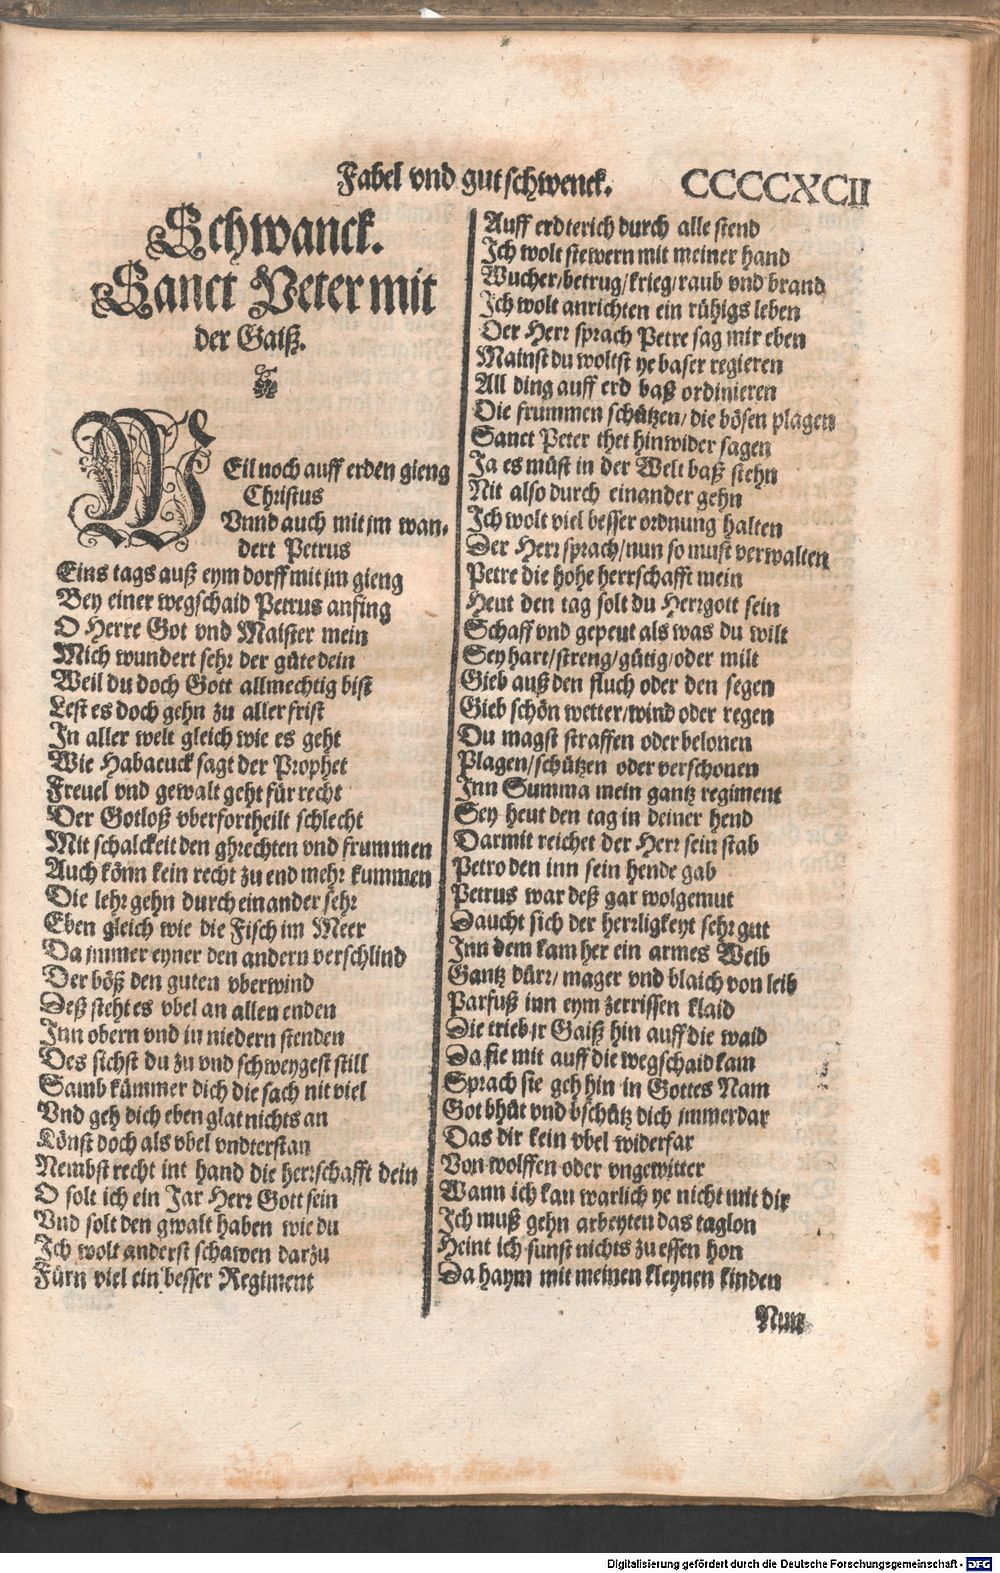 Fabel vnd gut schwenck. CCCCXCII
Schwanck.
Sanct Peter mit
der Gaiß.
WEil noch auff erden gieng
Christus
Vnnd auch mit jm wan-
dert Petrus
Eins tags auß eym dorff mit jm gieng
Bey einer wegschaid Petrus anfing
O Herre Got vnd Maister mein
Mich wundert sehr der güte dein
Weil du doch Gott allmechtig bist
Lest es doch gehn zu aller frist
In aller welt gleich wie es geht
Wie Habacuck sagt der Prophet
Freuel vnd gewalt geht für recht
Der Gotloß vberfortheilt schlecht
Mit schalckeit den ghrechten vnd frummen
Auch könn kein recht zu end mehr kummen
Die lehr gehn durch einander sehr
Eben gleich wie die Fisch im Meer
Da jmmer eyner den andern verschlind
Der böß den guten vberwind
Deß steht es vbel an allen enden
Inn obern vnd in niedern stenden
Des sichst du zu vnd schweygest still
Samb kümmer dich die sach nit viel
Vnd geh dich eben glat nichts an
Könst doch als vbel vndterstan
Nembst recht int hand die herrschafft dein
O solt ich ein Jar Herr Gott sein
Vnd solt den gwalt haben wie du
Ich wolt anderst schawen darzu
Fürn viel ein besser Regiment
Auff erdterich durch alle stend
Ich wolt stewern mit meiner hand
Wucher/betrug/krieg/raub vnd brand
Ich wolt anrichten ein rühigs leben
Der Herr sprach Petre sag mir eben
Mainst du woltst ye baser regieren
All ding auff erd baß ordinieren
Die frummen schützen/die bösen plagen
Sanct Peter thet hinwider sagen
Ja es müst in der Welt baß stehn
Nit also durch einander gehn
Ich wolt viel besser ordnung halten
Der Herr sprach/nun so must verwalten
Petre die hohe herrschafft mein
Heut den tag solt du Herrgott sein
Schaff vnd gepeut als was du wilt
Sey hart/streng/gütig/oder milt
Gieb auß den fluch oder den segen
Gieb schön wetter/wind oder regen
Du magst straffen oder belonen
Plagen/schützen oder verschonen
Inn Summa mein gantz regiment
Sey heut den tag in deiner hend
Darmit reichet der Herr sein stab
Petro den inn sein hende gab
Petrus war deß gar wolgemut
Daucht sich der herrligkeyt sehr gut
Inn dem kam her ein armes Weib
Gantz dürr/mager vnd blaich von leib
Parfuß inn eym zerrissen klaid
Die trieb jr Gaiß hin auff die waid
Da sie mit auff die wegschaid kam
Sprach sie geh hin in Gottes Nam
Got bhüt vnd bschütz dich jmmerdar
Das dir kein vbel widerfar
Von wolffen oder vngewitter
Wann ich kan warlich ye nicht mit dir
Ich muß gehn arbeyten das taglon
Heint ich sunst nichts zu essen hon
Da haym mit meinen kleynen kinden
Nun
Digitalisierung gefördert durch die Deutsche Forschungsgemeinschaft - DFG